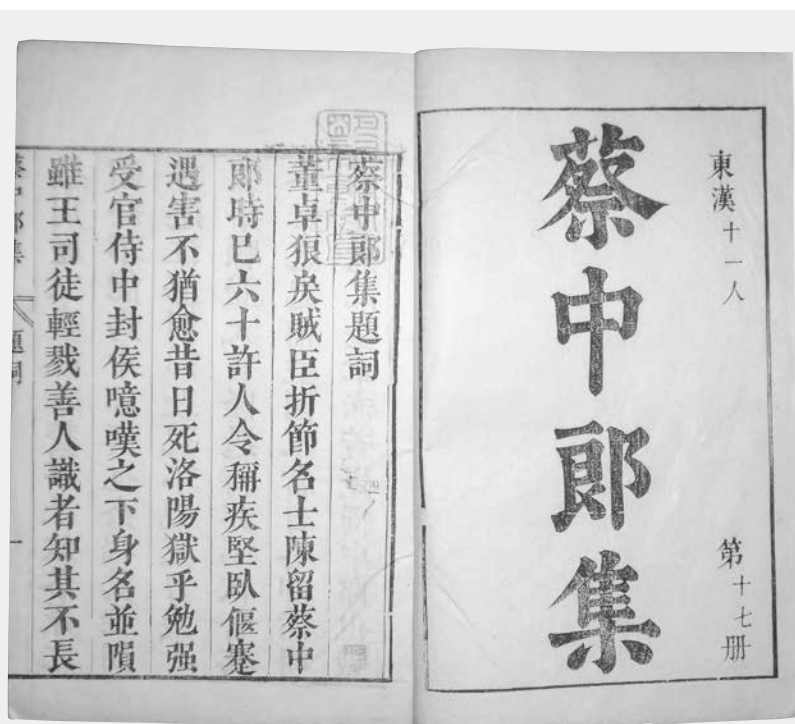 東漢十一人
第十七册
蔡中郎集
蔡中郎集題詞
董卓狠戾賊臣折節名士陳留蔡中
郎時已六十許人令稱疾堅臥偃蹇
遇害不猶愈昔日死洛陽獄乎勉强
受官侍中封侯噫嘆之下身名並隕
雖王司徒輕戮善人識者知其不長